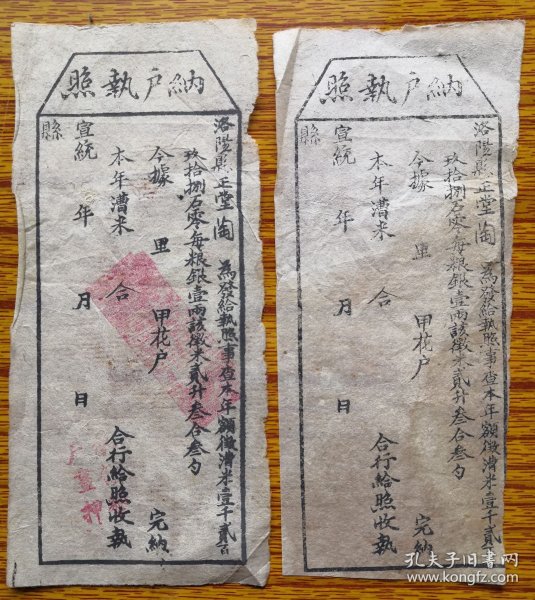 納户執照
洛陽縣正堂陶 為發給執照事查本年額徵漕米壹千貳百
玖拾捌石零每粮銀壹兩該徵米貳升叁合叁勺
今據 里 甲花户 完納
本年漕米 合 合行給照收執
宣統 年 月 日
縣
户
押
納户執照
洛陽縣正堂陶 為發給執照事查本年額徵漕米壹千貳百
玖拾捌石零每粮銀壹兩該徵米貳升叁合叁勺
今據 里 甲花户 完納
本年漕米 合 合行給照收執
宣統 年 月 日
縣
孔夫子旧书网
www.kongfz.com